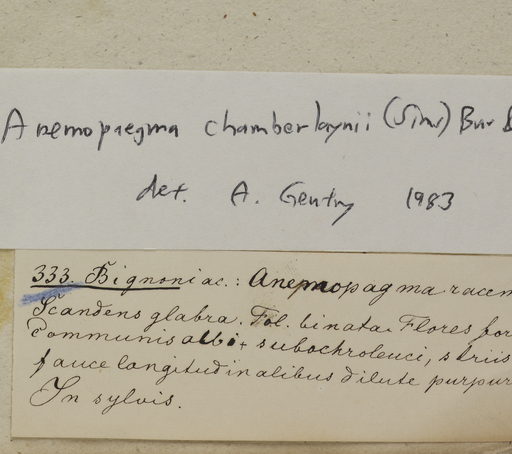 Anemopaegma chamberlaynii (Sims) Bur &
det. A. Gentry 1983
333. Bignoniac.: Anemopagma racem
Scandens glabra. Fol. binata. Flores for
communis albi, subochroleuci, striis
fauce longitudinalibus dilute purpur
In sylvis.